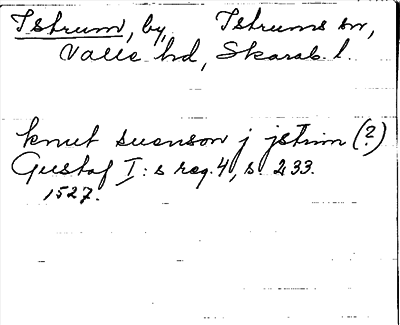 Istrum, by, Istrums sn,
Valle hd, Skarab. l.
knut suenson j jstrim (?)
Gustaf I:s reg. 4, s. 233.
1527.